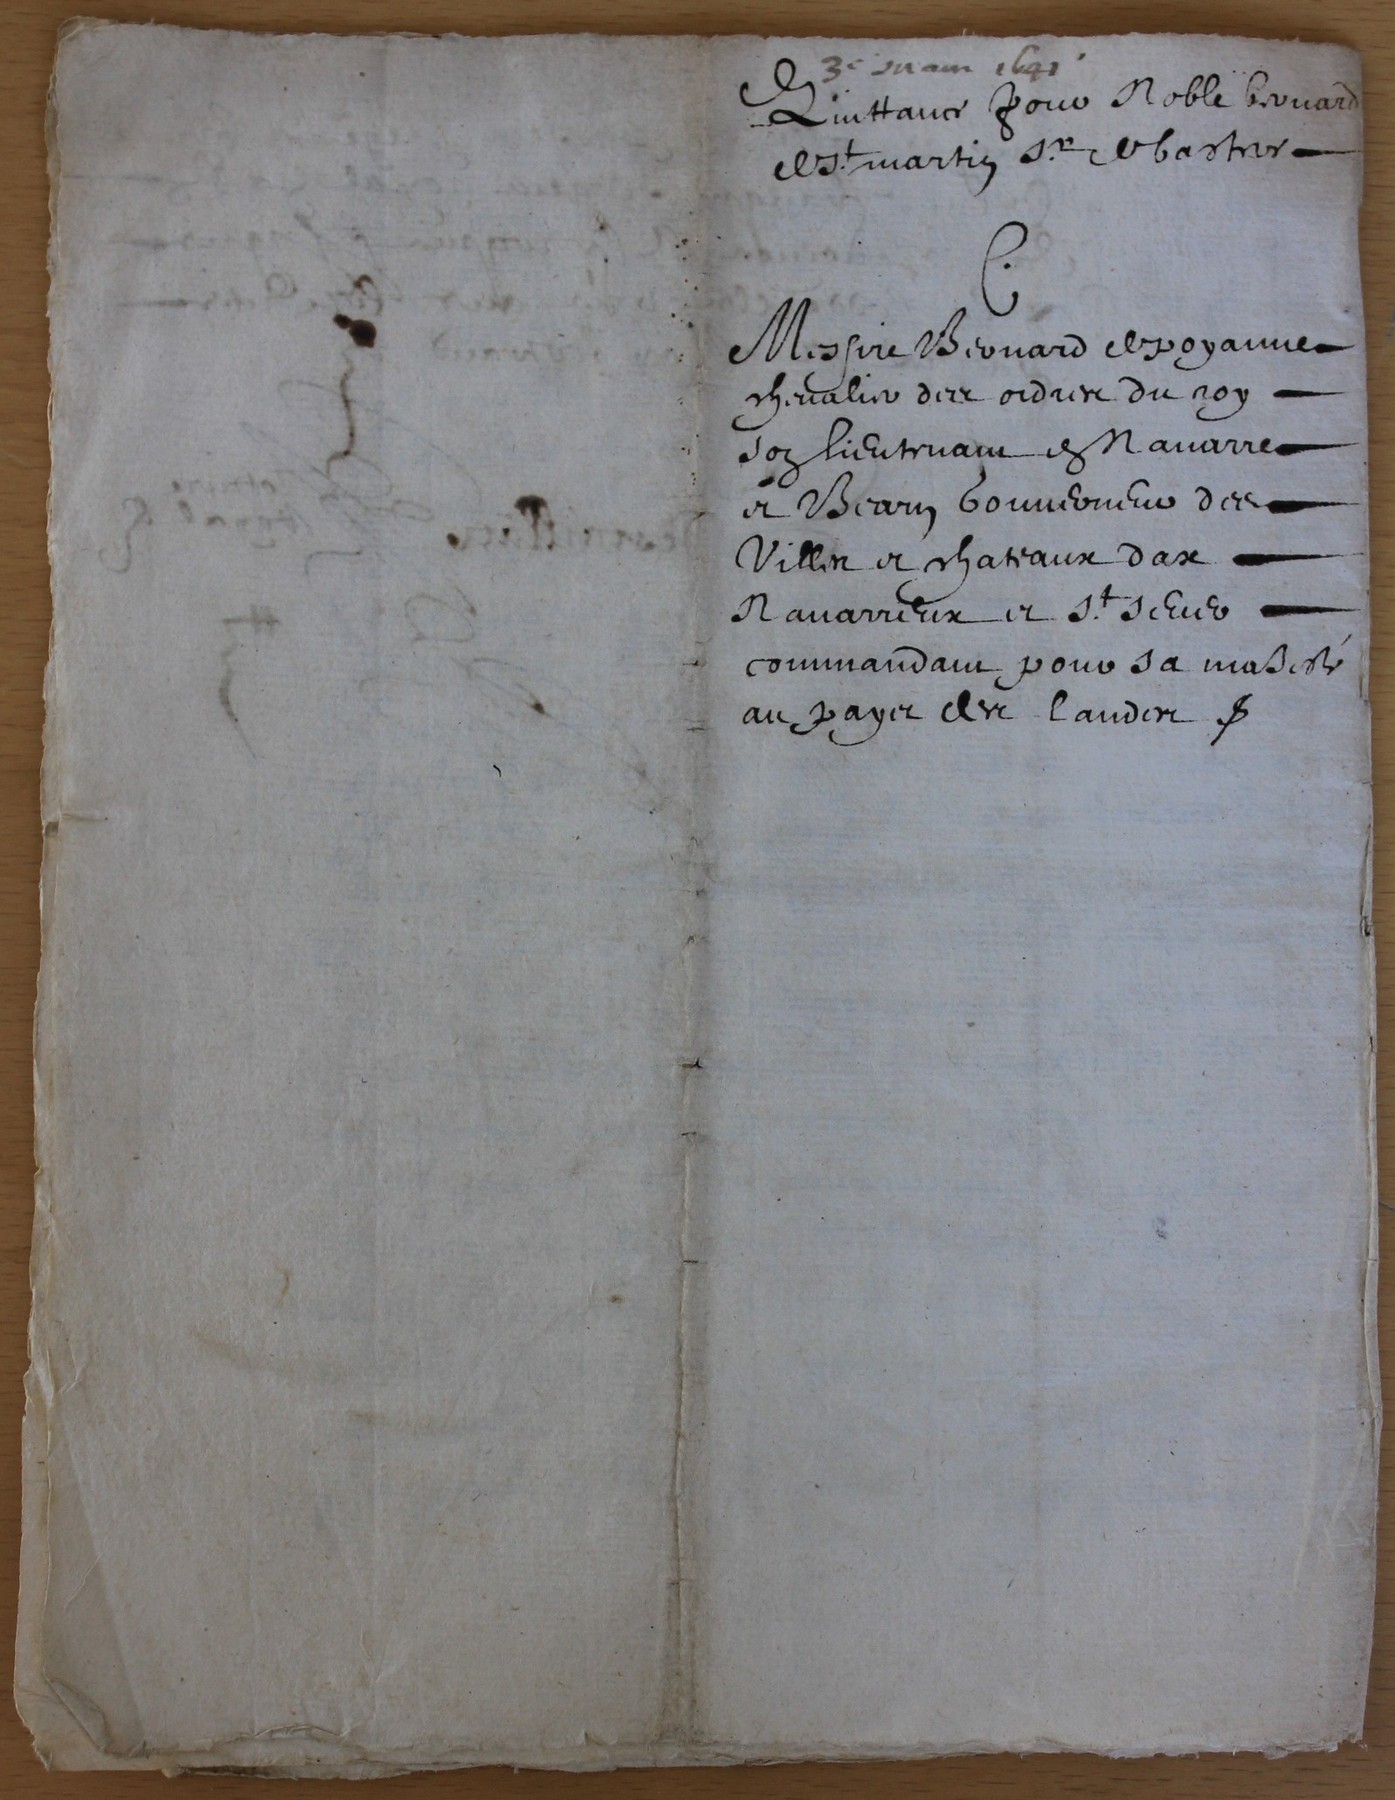 3e mars 1641
Quittance pour Noble bernard
de St martin Sr de bastres
C.
Messire Bernard de poyanne
chevalier des ordres du roy
son lieutenant en Navarre
et Bearn Gouverneur des
Villes et chateaux dax
Navarreux et St Sever
commandant pour sa majesté
au payes des landes